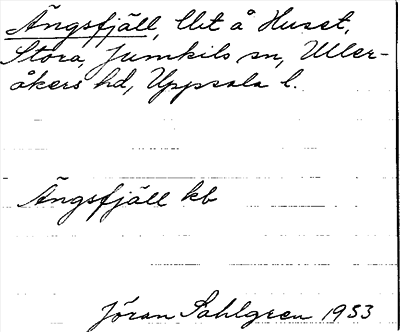 Ängsfjäll, llit å Huset,
Stora, Jumkils sn, Uller-
åkers hd, Uppsala l.
Ängsfjäll kb
Jöran Sahlgren 1953